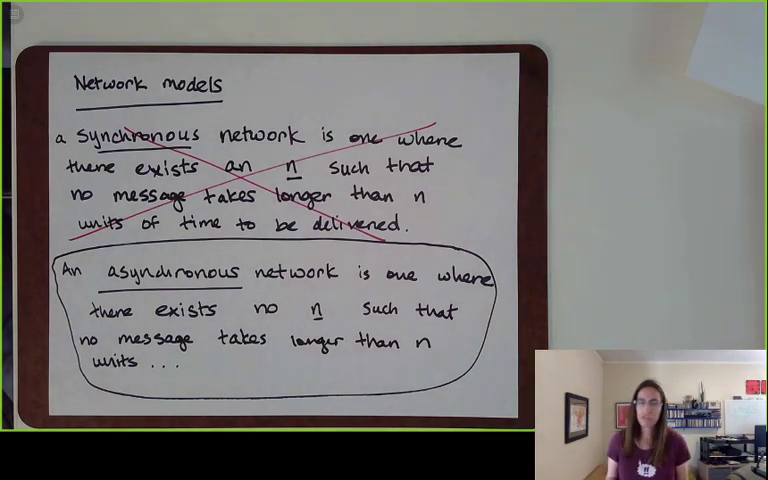 Network models
a synchronous network is one where
there exists an n such that
no message takes longer than n
units of time to be delivered.
An asynchronous network is one where
there exists no n such that
no message takes longer than n
units ...
!!